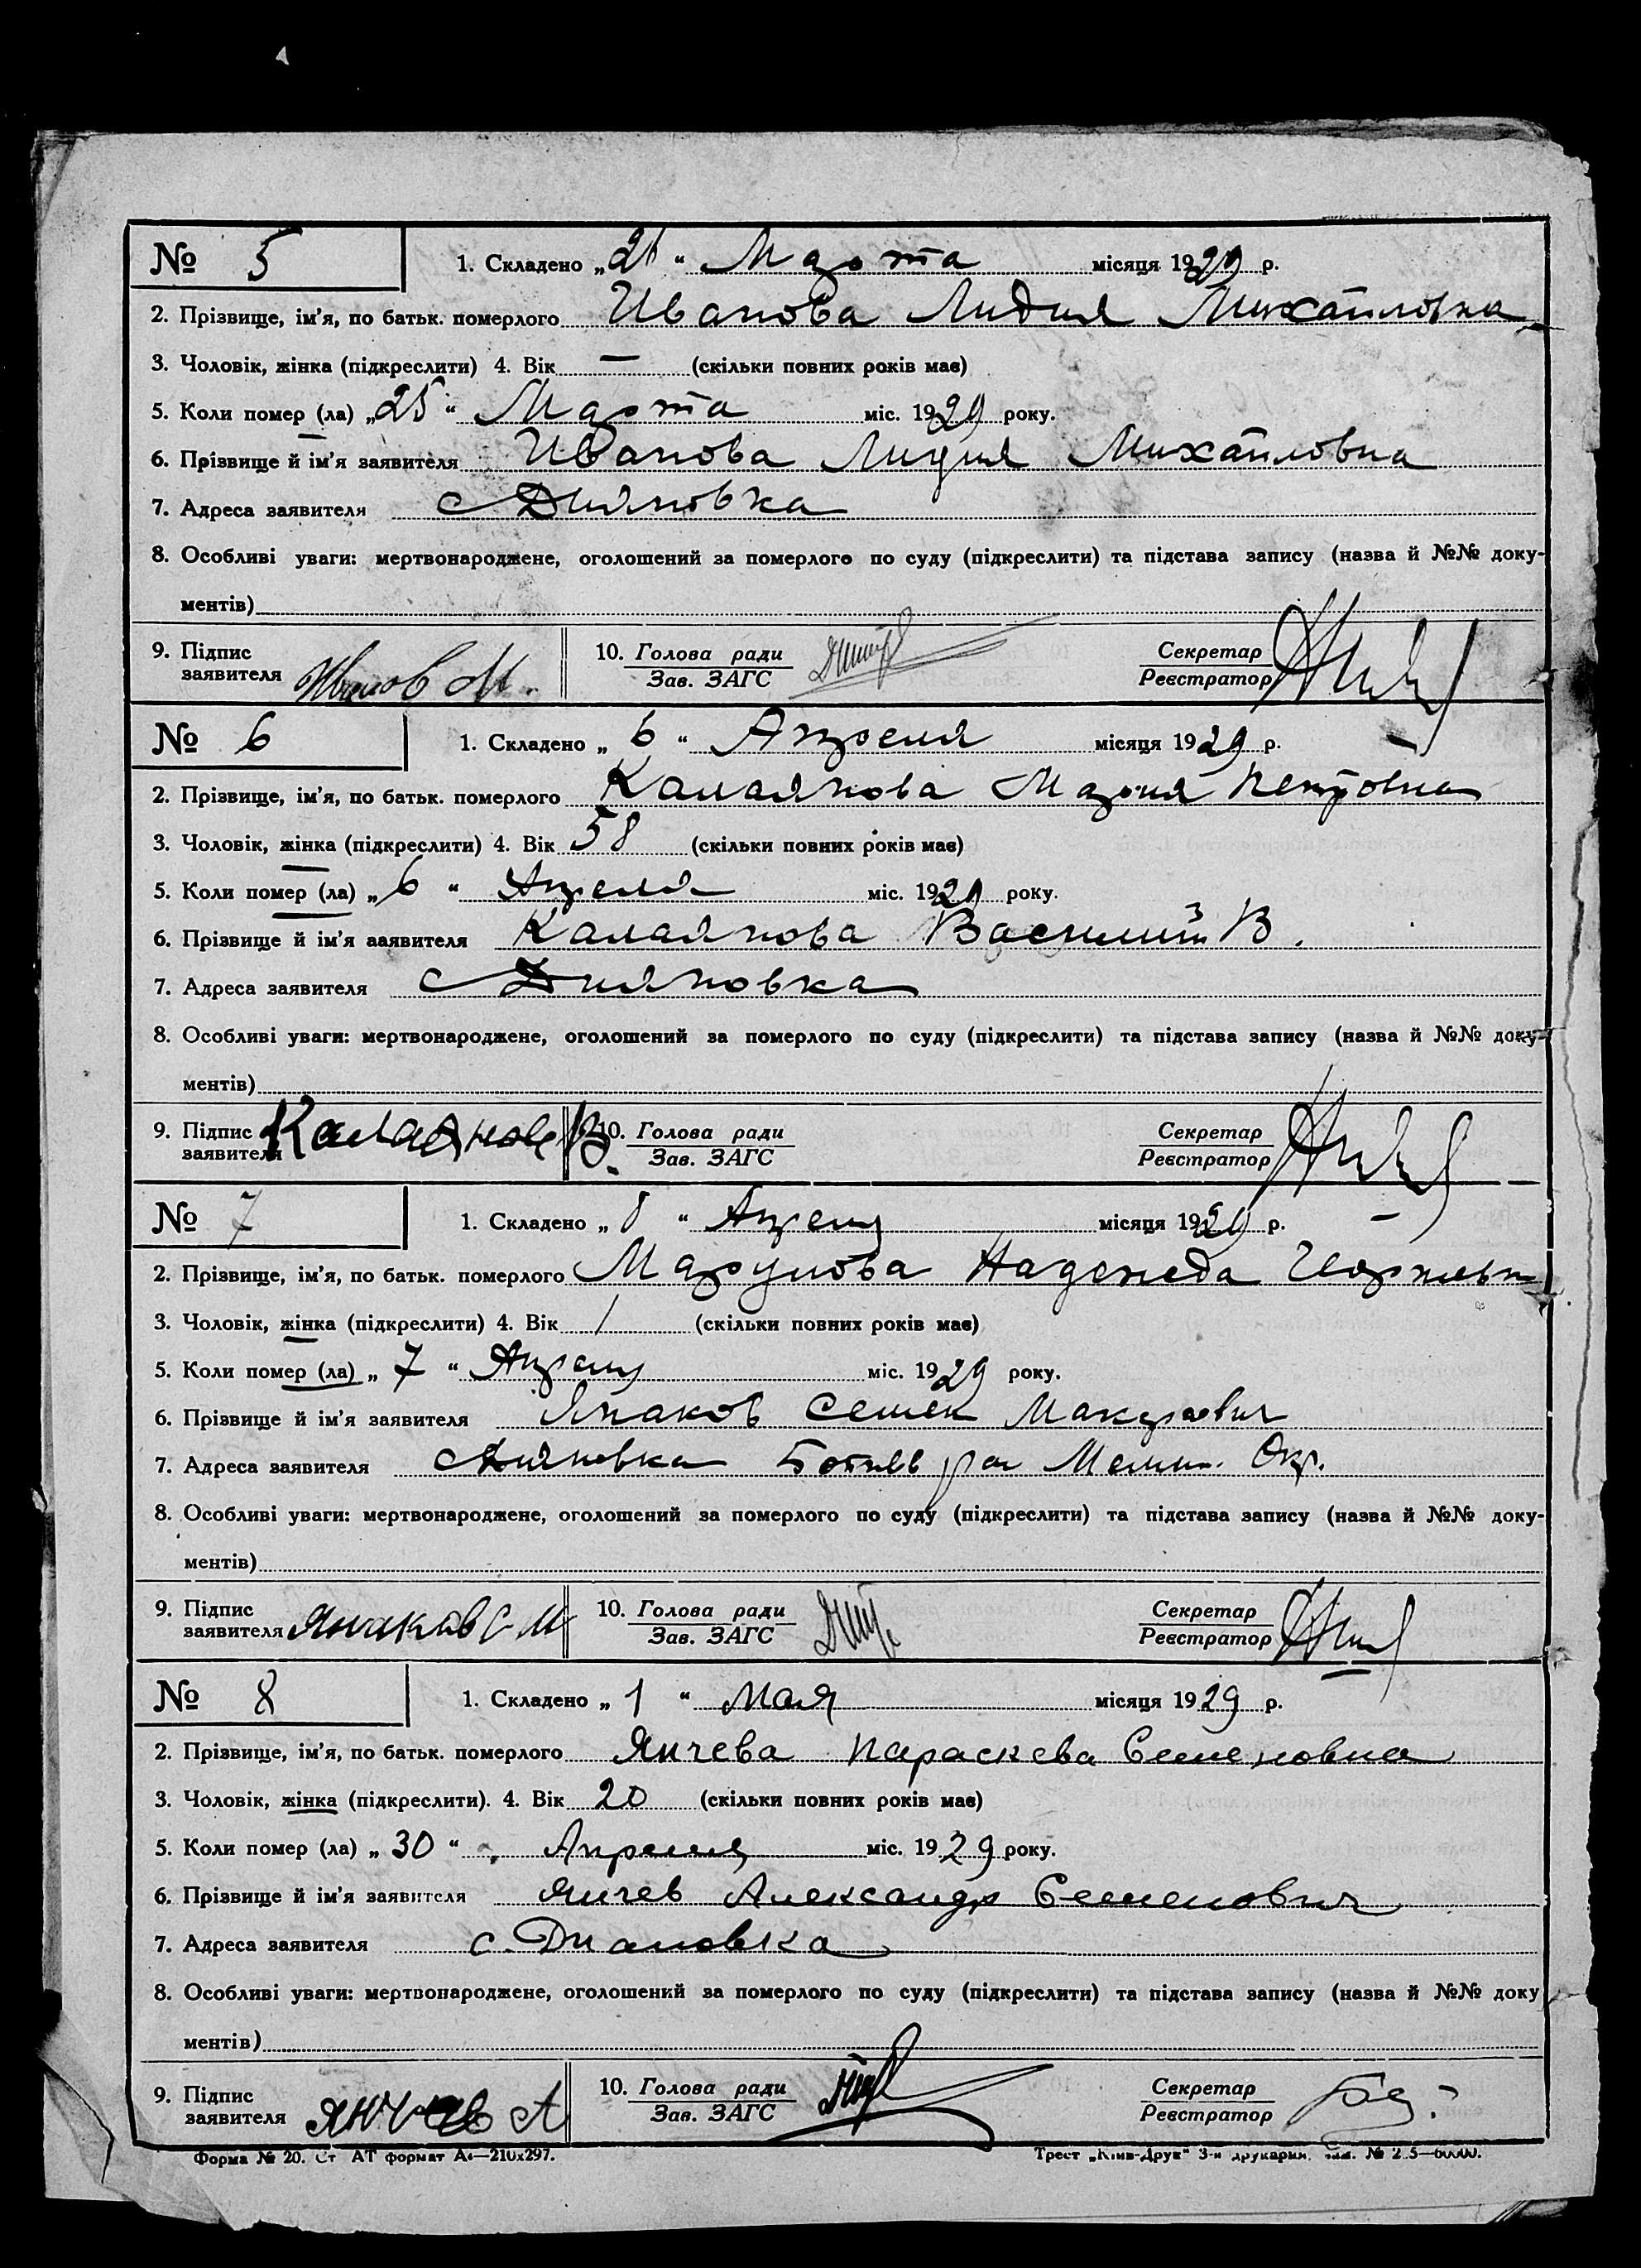 № 5 1. Складено „ “ Марта місяця 1929 р.
2. Прізвище, ім'я, по батьк. померлого Иванова Лидия Михайловна
3. Чоловік, жінка (підкреслити) 4. Вік — (скільки повних років має)
5. Коли помер (ла) „25“ Марта міс. 1929 року.
6. Прізвище й ім'я заявителя Иванова Лидия Михайловна
7. Адреса заявителя с Дияновка
8. Особливі уваги: мертвонароджене, оголошений за померлого по суду (підкреслити) та підстава запису (назва й №№ доку-
ментів)
9. Підпис заявителя Иванов М. 10. Голова ради Зав. ЗАГС Секретар Реєстратор
№ 6 1. Складено „ 6 “ Апреля місяця 1929 р.
2. Прізвище, ім'я, по батьк. померлого Калаянова Мария Петровна
3. Чоловік, жінка (підкреслити) 4. Вік 58 (скільки повних років має)
5. Коли помер (ла) „ 6 “ Апреля міс. 1929 року.
6. Прізвище й ім'я заявителя Калаянова Василий В.
7. Адреса заявителя с Дияновка
8. Особливі уваги: мертвонароджене, оголошений за померлого по суду (підкреслити) та підстава запису (назва й №№ доку-
ментів)
9. Підпис заявителя Калаянов В. 10. Голова ради Зав. ЗАГС Секретар Реєстратор
№ 7 1. Складено „ 8 “ Апреля місяця 1929 р.
2. Прізвище, ім'я, по батьк. померлого Надежда
3. Чоловік, жінка (підкреслити) 4. Вік 1 (скільки повних років має)
5. Коли помер (ла) „ 7 “ Апреля міс. 1929 року.
6. Прізвище й ім'я заявителя Янаков Семен
7. Адреса заявителя с Дияновка Ботиев ра Мелит. Окр.
8. Особливі уваги: мертвонароджене, оголошений за померлого по суду (підкреслити) та підстава запису (назва й №№ доку-
ментів)
9. Підпис заявителя Янаков С М 10. Голова ради Зав. ЗАГС Секретар Реєстратор
№ 8 1. Складено „ 1 “ Мая місяця 1929 р.
2. Прізвище, ім'я, по батьк. померлого Янчева Параскева Семеновна
3. Чоловік, жінка (підкреслити). 4. Вік 20 (скільки повних років має)
5. Коли помер (ла) „ 30 “ Апреля міс. 1929 року.
6. Прізвище й ім'я заявителя Янчев Александр Семенович
7. Адреса заявителя с. Диановка
8. Особливі уваги: мертвонароджене, оголошений за померлого по суду (підкреслити) та підстава запису (назва й №№ доку
ментів)
9. Підпис заявителя Янчев А 10. Голова ради Зав. ЗАГС Секретар Реєстратор
Форма № 20. Ст АТ формат А4—210х297. Трест „Київ-Друк“ 3-я друкарня.